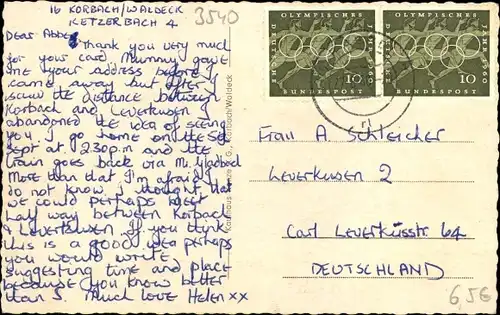 16 KORBACH/WALDECK
KETZERBACH 4
3540
Dear Abbe
Thank you very much
for your card Mummy gave
me your address before I
came away but after I
saw the distance between
Korbach and Leverkusen I
abandoned the idea of seeing
you. I go home on the 3rd
Sept at 2.30p.m and the
train goes back via M. Gladbach
More than that I'm afraid I
do not know I thought that
we could perhaps meet
half way between Korbach
& Leverkusen If you think
this is a good idea perhaps
you would write
suggesting time and place
because you know better
than I. Much love Helen xx
Korbach/Waldeck
OLYMPISCHES JAHR 1960
PIERRE DE
10
BUNDESPOST
OLYMPISCHES JAHR 1960
PIERRE DE
10
BUNDESPOST
Frau A Schleicher
Leverkusen 2
Carl Leverküsstr 64
DEUTSCHLAND
6,5€